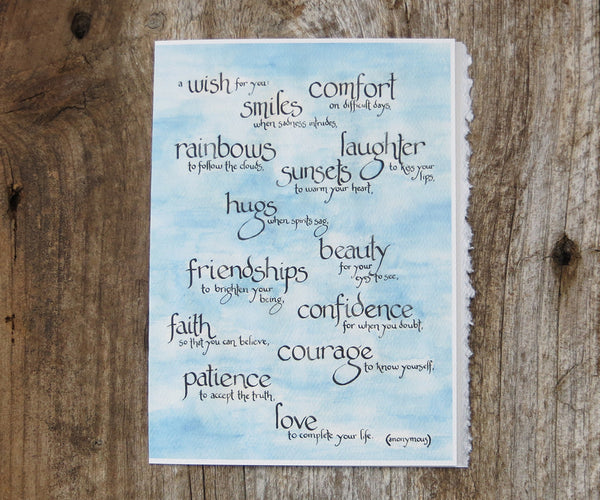 a wish for you: comfort
on difficult days,
smiles
when sadness intrudes,
rainbows
to follow the clouds,
laughter
to kiss your
lips,
sunsets
to warm your heart,
hugs
when spirits sag,
beauty
for your
eyes to see,
friendships
to brighten your
being,
confidence
for when you doubt,
faith
so that you can believe,
courage
to know yourself,
patience
to accept the truth,
love
to complete your life. (anonymous)